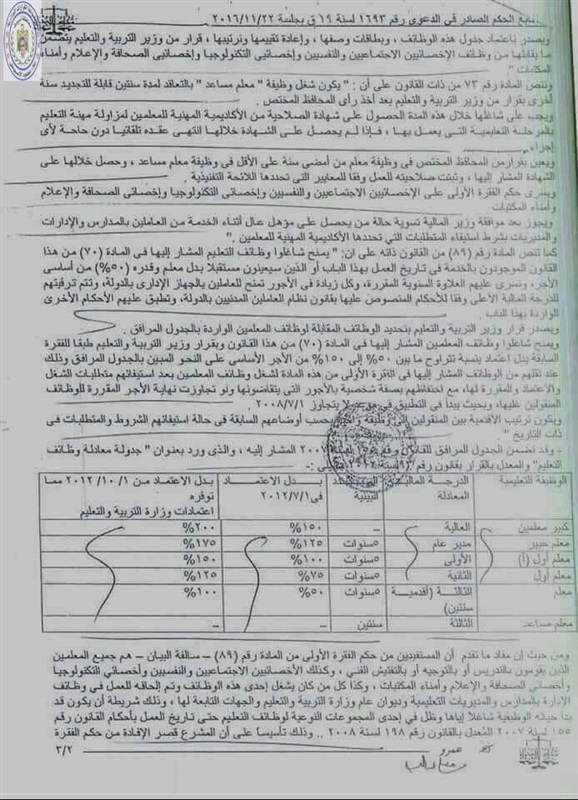 تابع الحكم الصادر في الدعوى رقم ١٦٩٣ لسنة ١٩ ق بجلسة ٢٠١٦/١١/٢٢
ويصدر باعتماد جدول هذه الوظائف ، وبطاقات وصفها ، وإعادة تقييمها وترتيبها ، قرار من وزير التربية والتعليم يتضمن
ما يقابلها من وظائف الإخصائيين الاجتماعيين والنفسيين وإخصائيى التكنولوجيا وإخصائيى الصحافة والإعلام وأمناء
المكتبات "
وتنص المادة رقم ٧٣ من ذات القانون على أن : " يكون شغل وظيفة " معلم مساعد " بالتعاقد لمدة سنتين قابلة للتجديد سنة
أخرى بقرار من وزير التربية والتعليم بعد أخذ رأى المحافظ المختص .
ويجب على شاغلها خلال هذه المدة الحصول على شهادة الصلاحية من الأكاديمية المهنية للمعلمين لمزاولة مهنة التعليم
بالمرحلة التعليمية التى يعمل بها ، فإذا لم يحصل على الشهادة خلالها انتهى عقده تلقائيا دون حاجة لأى
إجراء .
ويعين بقرار من المحافظ المختص فى وظيفة معلم من أمضى سنة على الأقل فى وظيفة معلم مساعد ، وحصل خلالها على
الشهادة المشار إليها ، وثبتت صلاحيته للعمل وفقا للمعايير التى تحددها اللائحة التنفيذية .
ويسرى حكم الفقرة الأولى على الإخصائيين الاجتماعيين والنفسيين وإخصائى التكنولوجيا وإخصائى الصحافة والإعلام
وأمناء المكتبات
ويجوز بعد موافقة وزير المالية تسوية حالة من يحصل على مؤهل عال أثناء الخدمة من العاملين بالمدارس والإدارات
والمديريات بشرط استيفاء المتطلبات التى تحددها الأكاديمية المهنية للمعلمين . "
كما تنص المادة رقم (٨٩) من القانون ذاته على ان: "يمنح شاغلوا وظائف التعليم المشار إليها فى المادة (٧٠) من هذا
القانون الموجودون بالخدمة فى تاريخ العمل بهذا الباب أو الذين سيعينون مستقبلا بدل معلم وقدره (٥٠%) من أساسى
الأجر، وتسرى عليهم العلاوة السنوية المقررة، وكل زيادة فى الأجور تمنح للعاملين بالجهاز الإدارى بالدولة، وتتم ترقيتهم
للدرجة المالية الأعلى وفقا للأحكام المنصوص عليها بقانون نظام العاملين المدنيين بالدولة، وتطبق عليهم الأحكام الأخرى
الواردة بهذا الباب .
ويصدر قرار وزير التربية والتعليم بتحديد الوظائف المقابلة لوظائف المعلمين الواردة بالجدول المرافق .
ويمنح شاغلوا وظائف المعلمين المشار إليها فى المادة (٧٠) من هذا القانون وبقرار وزير التربية والتعليم طبقا للفقرة
السابقة بدل اعتماد بنسبة تتراوح ما بين ٥٠% إلى ١٥٠% من الأجر الأساسى على النحو المبين بالجدول المرافق وذلك
عند نقلهم من الوظائف المشار إليها فى الفقرة الأولى من هذه المادة لشغل وظائف المعلمين بعد استيفائهم متطلبات الشغل
والاعتماد والمقررة لها، مع احتفاظهم بصفة شخصية بالأجور التى يتقاضونها ولو تجاوزت نهاية الأجر المقررة للوظائف
المنقولين عليها، وبحيث يبدأ فى التطبيق فى لا يتجاوز ٢٠٠٨/٧/١ .
ويكون ترتيب الأقدمية بين المنقولين إلى وظيفة بحسب أوضاعهم السابقة فى حالة استيفائهم الشروط والمتطلبات فى
ذات التاريخ "
- وقد تضمن الجدول المرافق للقانون رقم لسنة ٢٠٠٧ المشار إليه ، والذى ورد بعنوان " جدولة معادلة وظائف
التعليم" والمعدل بالقرار بقانون رقم
الوظيفة التعليمية | الدرجة المعادلة | البينية | بدل الاعتماد فى ٢٠١٢/٧/١ | بدل الاعتماد من ٢٠١٢/١٠/١ مما توفره اعتمادات وزارة التربية والتعليم
كبير معلمين | العالية | – | ١٥٠% | ٢٠٠%
معلم خبير | مدير عام | ٥سنوات | ١٢٥% | ١٧٥%
معلم أول (أ) | الأولى | ٥سنوات | ١٠٠% | ١٥٠%
معلم أول | الثانية | ٥سنوات | ٧٥% | ١٢٥%
معلم | الثالثة (أقدمية سنتين) | ٥سنوات | ٥٠% | ١٠٠%
معلم مساعد | الثالثة | سنتين | – | –
ومن حيث إن مفاد ما تقدم أن المستفيدين من حكم الفقرة الأولى من المادة رقم (٨٩) – سالفة البيان – هم جميع المعلمين
الذين يقومون بالتدريس أو بالتوجيه أو بالتفتيش الفنى ، وكذلك الأخصائيين الاجتماعيين والنفسيين وأخصائي التكنولوجيا
وأخصائى الصحافة والإعلام وأمناء المكتبات ، وكذا كل من كان يشغل إحدى هذه الوظائف وتم إلحاقه للعمل في وظائف
الإدارة بالمدارس والمديريات التعليمية وديوان عام وزارة التربية والتعليم والجهات التابعة لها ، وذلك شريطة أن يكون قد
بدأ حياته الوظيفية شاغلا إياها وظل في إحدى المجموعات النوعية لوظائف التعليم حتى تاريخ العمل بأحكام القانون رقم
١٥٥ لسنة ٢٠٠٧ المعدل بالقانون رقم ١٩٨ لسنة ٢٠٠٨ .. وذلك تأسيسا على أن المشرع قصر الإفادة من حكم الفقرة
٣/٢
عمرو